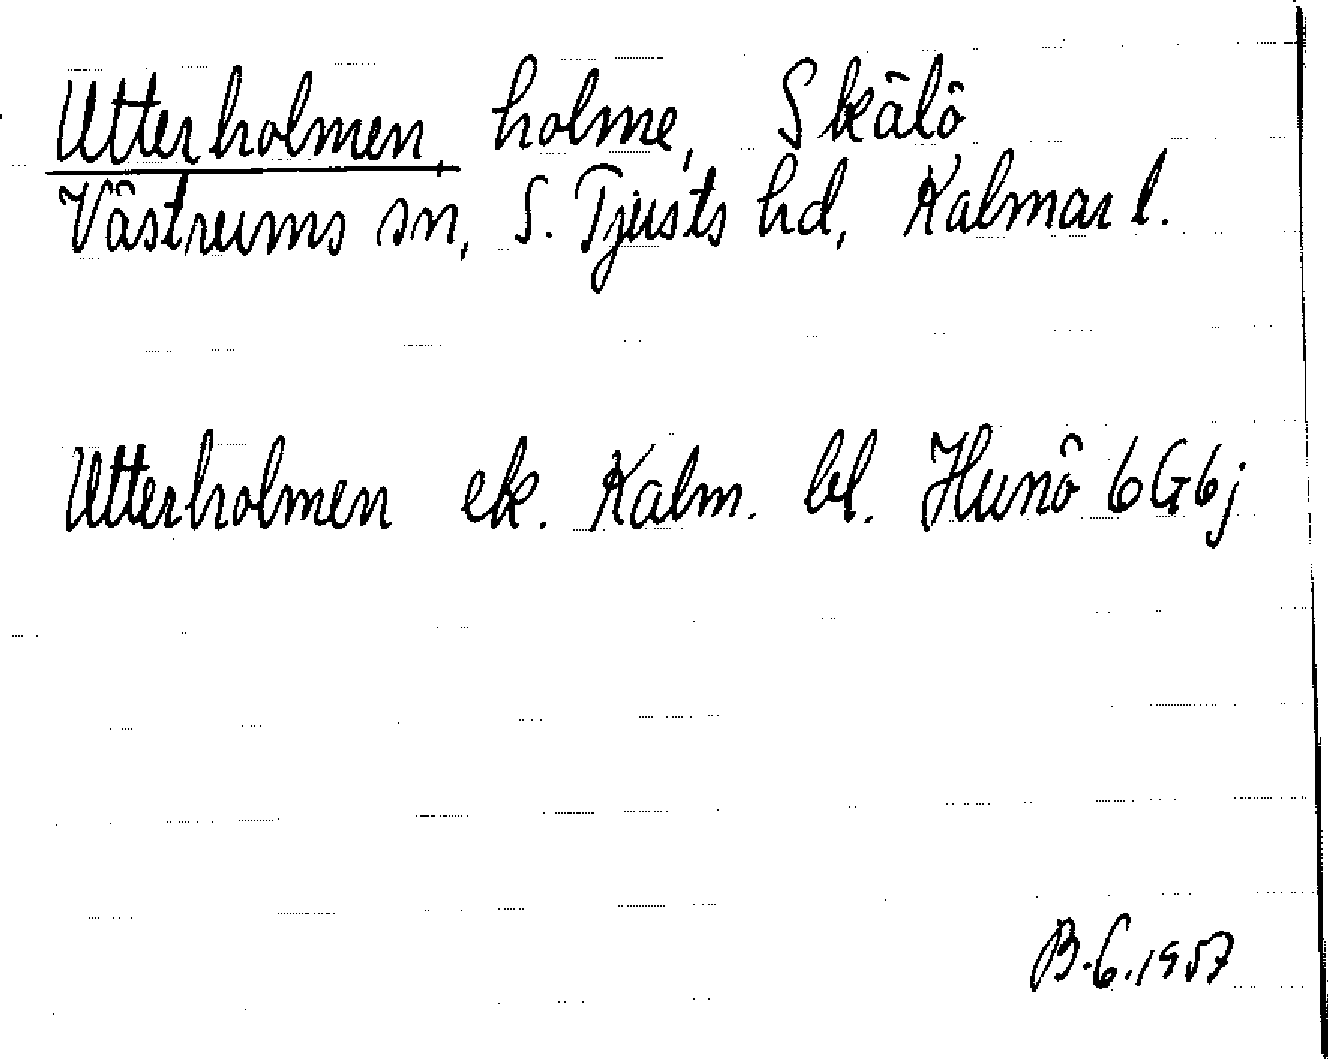 Utterholmen, holme, Skälö
Västrums sn, S. Tjusts hd, Kalmar l.
Utterholmen ek. Kalm. bl. Hunö 6G6j
B.G.1957